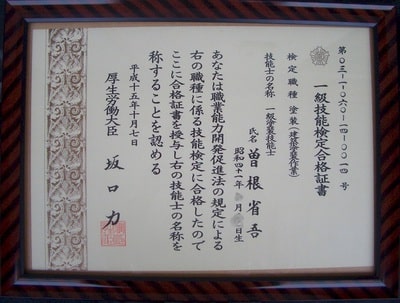 第０３-１-０６０-１４-００１４号
一級技能検定合格証書
検定職種 塗装(建築塗装作業)
技能士の名称 一級塗装技能士
氏名 曽根省吾
昭和四十一年 月 日生
あなたは職業能力開発促進法の規定による
右の職種に係る技能検定に合格したので
ここに合格証書を授与し右の技能士の名称を
称することを認める
平成十五年十月七日
厚生労働大臣 坂口力